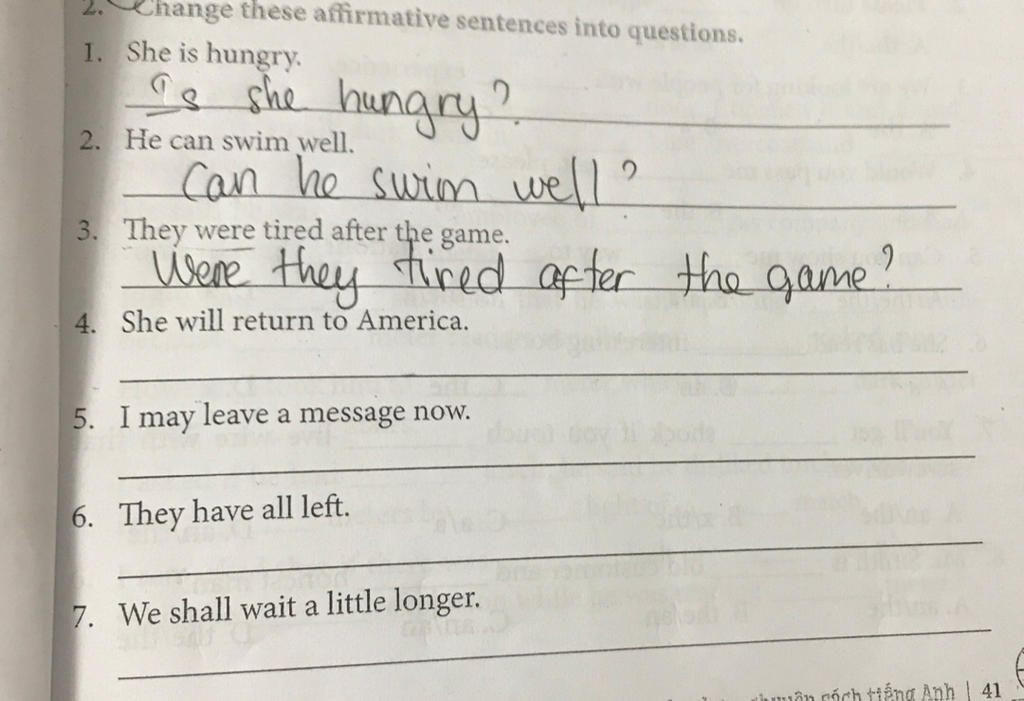 2. Change these affirmative sentences into questions.
1. She is hungry.
Is she hungry?
2. He can swim well.
Can he swim well?
3. They were tired after the game.
Were they tired after the game?
4. She will return to America.
5. I may leave a message now.
6. They have all left.
7. We shall wait a little longer.
sách tiếng Anh | 41